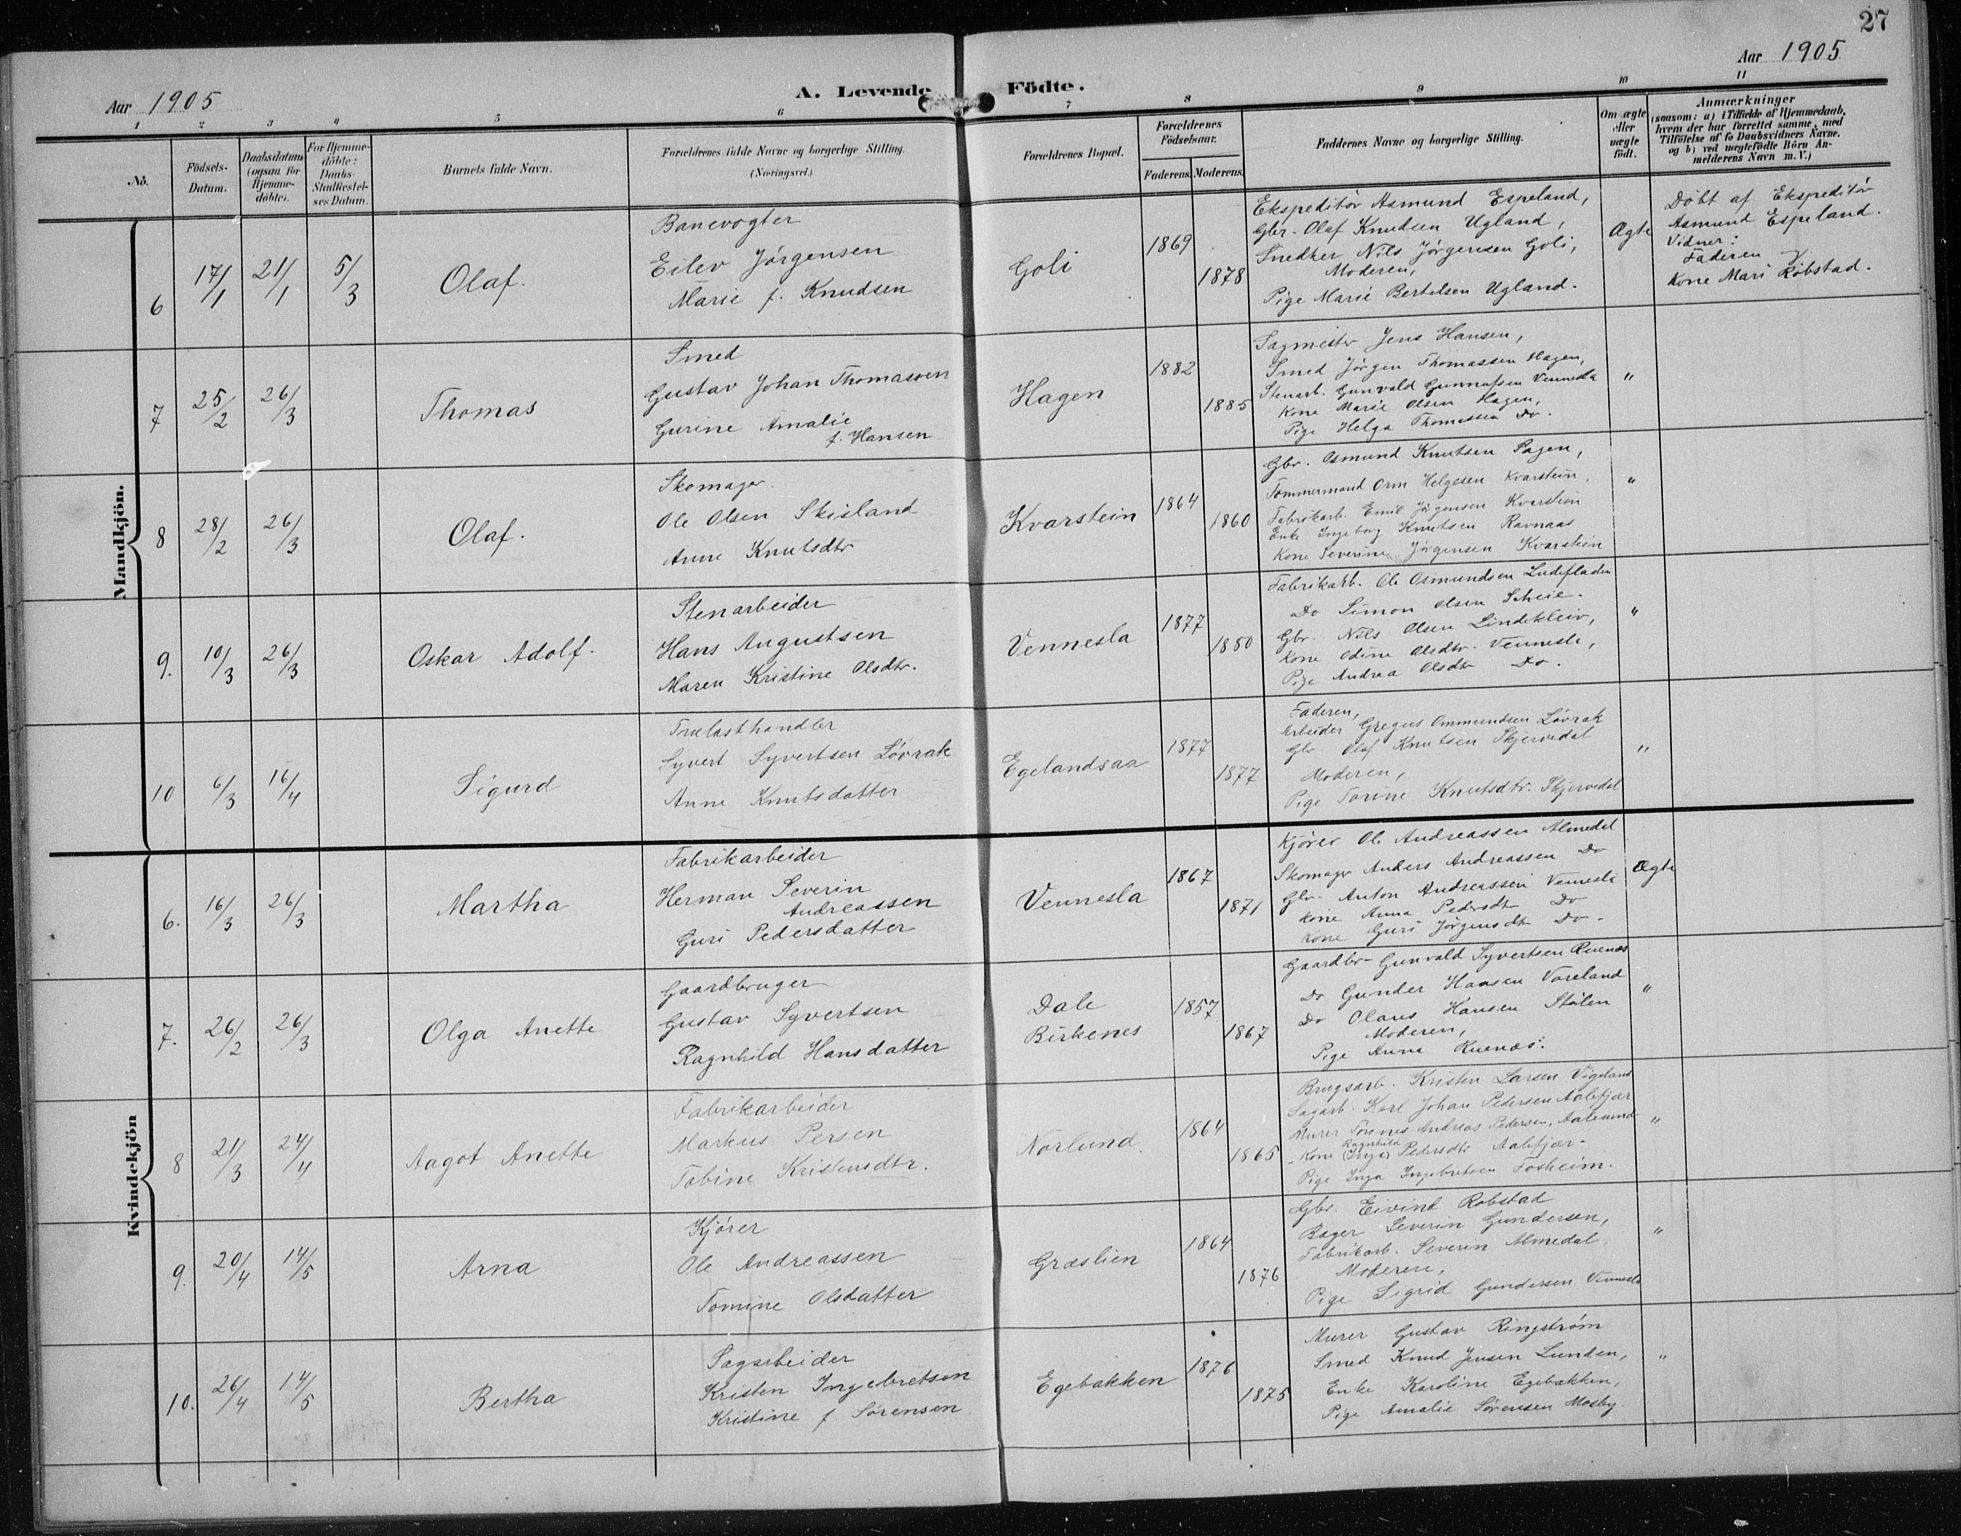 27
Aar 1905
A. Levende Födte.
Aar 1905
1 2 3 4 5 6 7 8 9 10 11
No.
Födsels-
Datum.
Daabsdatum
(ogsaa for
Hjemme-
döbte).
For Hjemme-
döbte:
Daabs-
Stadfæstel-
ses Datum.
Barnets fulde Navn.
Forældrenes fulde Navne og borgerlige Stilling.
(Næringsvei.)
Forældrenes Bopæl.
Forældrenes
Födselsaar.
Faderens. Moderens.
Faddernes Navne og borgerlige Stilling.
Om ægte
eller
uægte
födt.
Anmærkninger
(saasom: a) i Tilfælde af Hjemmedaab,
hvem der har forrettet samme, med
Tilföielse af to Daabsvidners Navne,
og b) ved uægtefödte Börn An-
melderens Navn m. V.)
Mandkjön.
6
17/1
21/1
5/3
Olaf.
Banevogter
Eilev Jørgensen
Marie f. Knudsen
Goli
1869
1878
Ekspeditør Asmund Espeland,
Gbr. Olaf Knudsen Ugland,
Snedker Nils Jørgensen Goli,
Moderen,
Pige Marie Bertelsen Ugland.
Ægte
Døbt af Ekspeditør
Asmund Espeland.
Vidner:
Faderen
Kone Mari Robstad.
7
25/2
26/3
Thomas
Smed
Gustav Johan Thomassen
Gurine Amalie
f. Hansen
Hagen
1882
1885
Sagmester Jens Hansen,
Smed Jørgen Thomassen Hagen,
Stenarb. Gunvald Gunnufsen Vennesla
Kone Marie Olsen Hagen,
Pige Helga Thomassen Do.
"
8
28/2
26/3
Olaf.
Skomager.
Ole Olsen Skisland
Anne Knutsdtr
Kvarstein
1864
1860
Gbr. Osmund Knutsen Sagen,
Tømmermand Orm Helgesen Kvarstein.
Fabrikarb. Emil Jørgensen Kvarstein
Enke Ingeborg Knutsen Ravnaas
Kone Severine Jørgensen Kvarstein
"
9.
10/3
26/3
Oskar Adolf.
Stenarbeider
Hans Augustsen
Maren Kristine Olsdtr.
Vennesla
1877
1880
Fabrikarb. Ole Osmundsen Ludefladen
Do Simon Olsen Scheie.
Gbr. Nils Olsen Lindekleiv,
Kone Odine Olsdtr. Vennesla,
Pige Andrea Olsdtr Do.
"
10
6/3
16/4
Sigurd
Trælasthandler
Syvert Syvertsen Løvrak
Anne Knutsdatter
Egelandsaa
1877
1877
Faderen,
Arbeider Gregus Ommundsen Løvrak
Gbr Olaf Knutsen Skjervedal
Moderen,
Pige Torine Knutsdtr. Skjervedal
"
Kvindekjön
6.
16/3
26/3
Martha
Fabrikarbeider
Herman Severin
Andreassen
Guri Pedersdatter
Vennesla
1867
1871
Kjører Ole Andreassen Almedal
Skomager Anders Andreassen Do
Gbr. Anton Andreassen Vennesla
Kone Anna Pedersdt Do
Kone Guri Jørgensdt Do.
Ægte
7.
26/2
26/3
Olga Anette
Gaardbruger
Gustav Syvertsen
Ragnhild Hansdatter
Dale
Birkenes
1857
1867
Gaardbr- Gunvald Syvertsen Ruenæs
Do Gunder Hansen Voreland
Do Olaus Hansen Stølen
Moderen,
Pige Anna Ruenæs.
"
8
21/3
24/4
Aagot Anette
Fabrikarbeider
Markus Persen
Tobine Kristensdtr.
Norlund.
1864
1865
Brugsarb. Kristen Larsen Vigeland
Sagarb. Karl Johan Pedersen Aalefjær
Murer Andreas Pedersen,
Ragnhild
Kone (Inga) Pedersdtr Aalefjær-
Pige Inga Ingebretsen Fosheim.
"
9.
20/4
14/5
Arna
Kjører
Ole Andreassen
Tomine Olsdatter
Græslien
1864
1876
Gbr. Eivind Robstad
Bager Severin Gundersen,
Fabrikarb. Severin Almedal.
Moderen,
Pige Sigrid Gundersen Vennesla
"
10.
26/4
14/5
Bertha
Sagarbeider
Kristen Ingebretsen
Kristine f Sørensen
Egebakken
1876
1875
Murer Gustav Ringstrøm
Smed Knud Jensen Lunden,
Enke Karoline Egebakken,
Pige Amalie Sørensen Mosby.
"